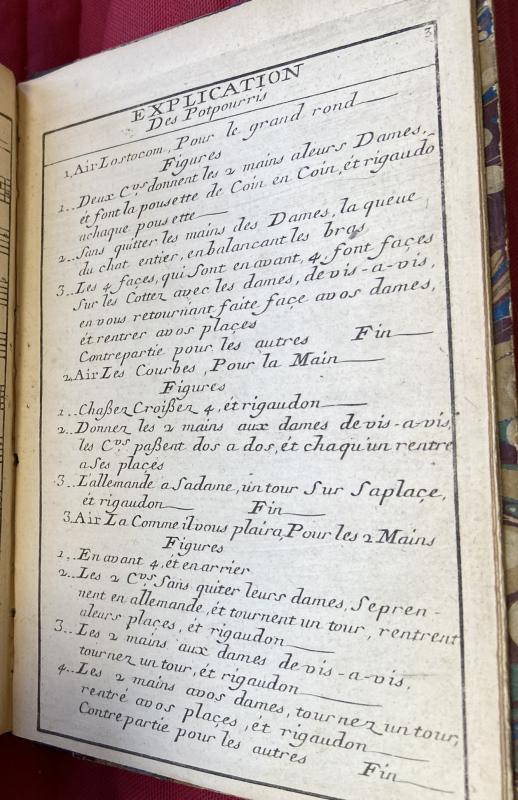 3
EXPLICATION
Des Potpourris
1. Air Lostocom, Pour le grand rond
Figures
1.. Deux C.vs donnent les 2 mains aleurs Dames,
ét font la pousette de Coin en Coin, ét rigaudo
achaque pousette
2.. Sans quitter les mains des Dames, la queue
du chat entier, en balancant les bras
3.. Les 4 façes, qui sont en avant, 4 font façes
sur les Cottez avec les dames, de vis-a-vis,
en vous retournant faite façe avos dames,
ét rentrer avos plaçes
Contrepartie pour les autres Fin
2. Air Les Courbes, Pour la Main
Figures
1.. Chaßez Croißez 4, ét rigaudon
2.. Donnez les 2 mains aux dames de vis-a-vis,
les C.vs paßent dos a dos, ét chaqu'un rentre
a ses plaçes
3.. L'allemande a sadame, un tour sur saplaçe,
ét rigaudon Fin
3. Air La Comme il vous plaira, Pour les 2 Mains
Figures
1.. En avant 4, ét en arrier
2.. Les 2 C.vs sans quiter leurs dames, se pren-
nent en allemande, ét tournent un tour, rentrent
aleurs plaçes, ét rigaudon
3.. Les 2 mains aux dames de vis-a-vis,
tournez un tour, ét rigaudon
4.. Les 2 mains avos dames, tournez un tour,
rentré avos plaçes, ét rigaudon
Contrepartie pour les autres Fin